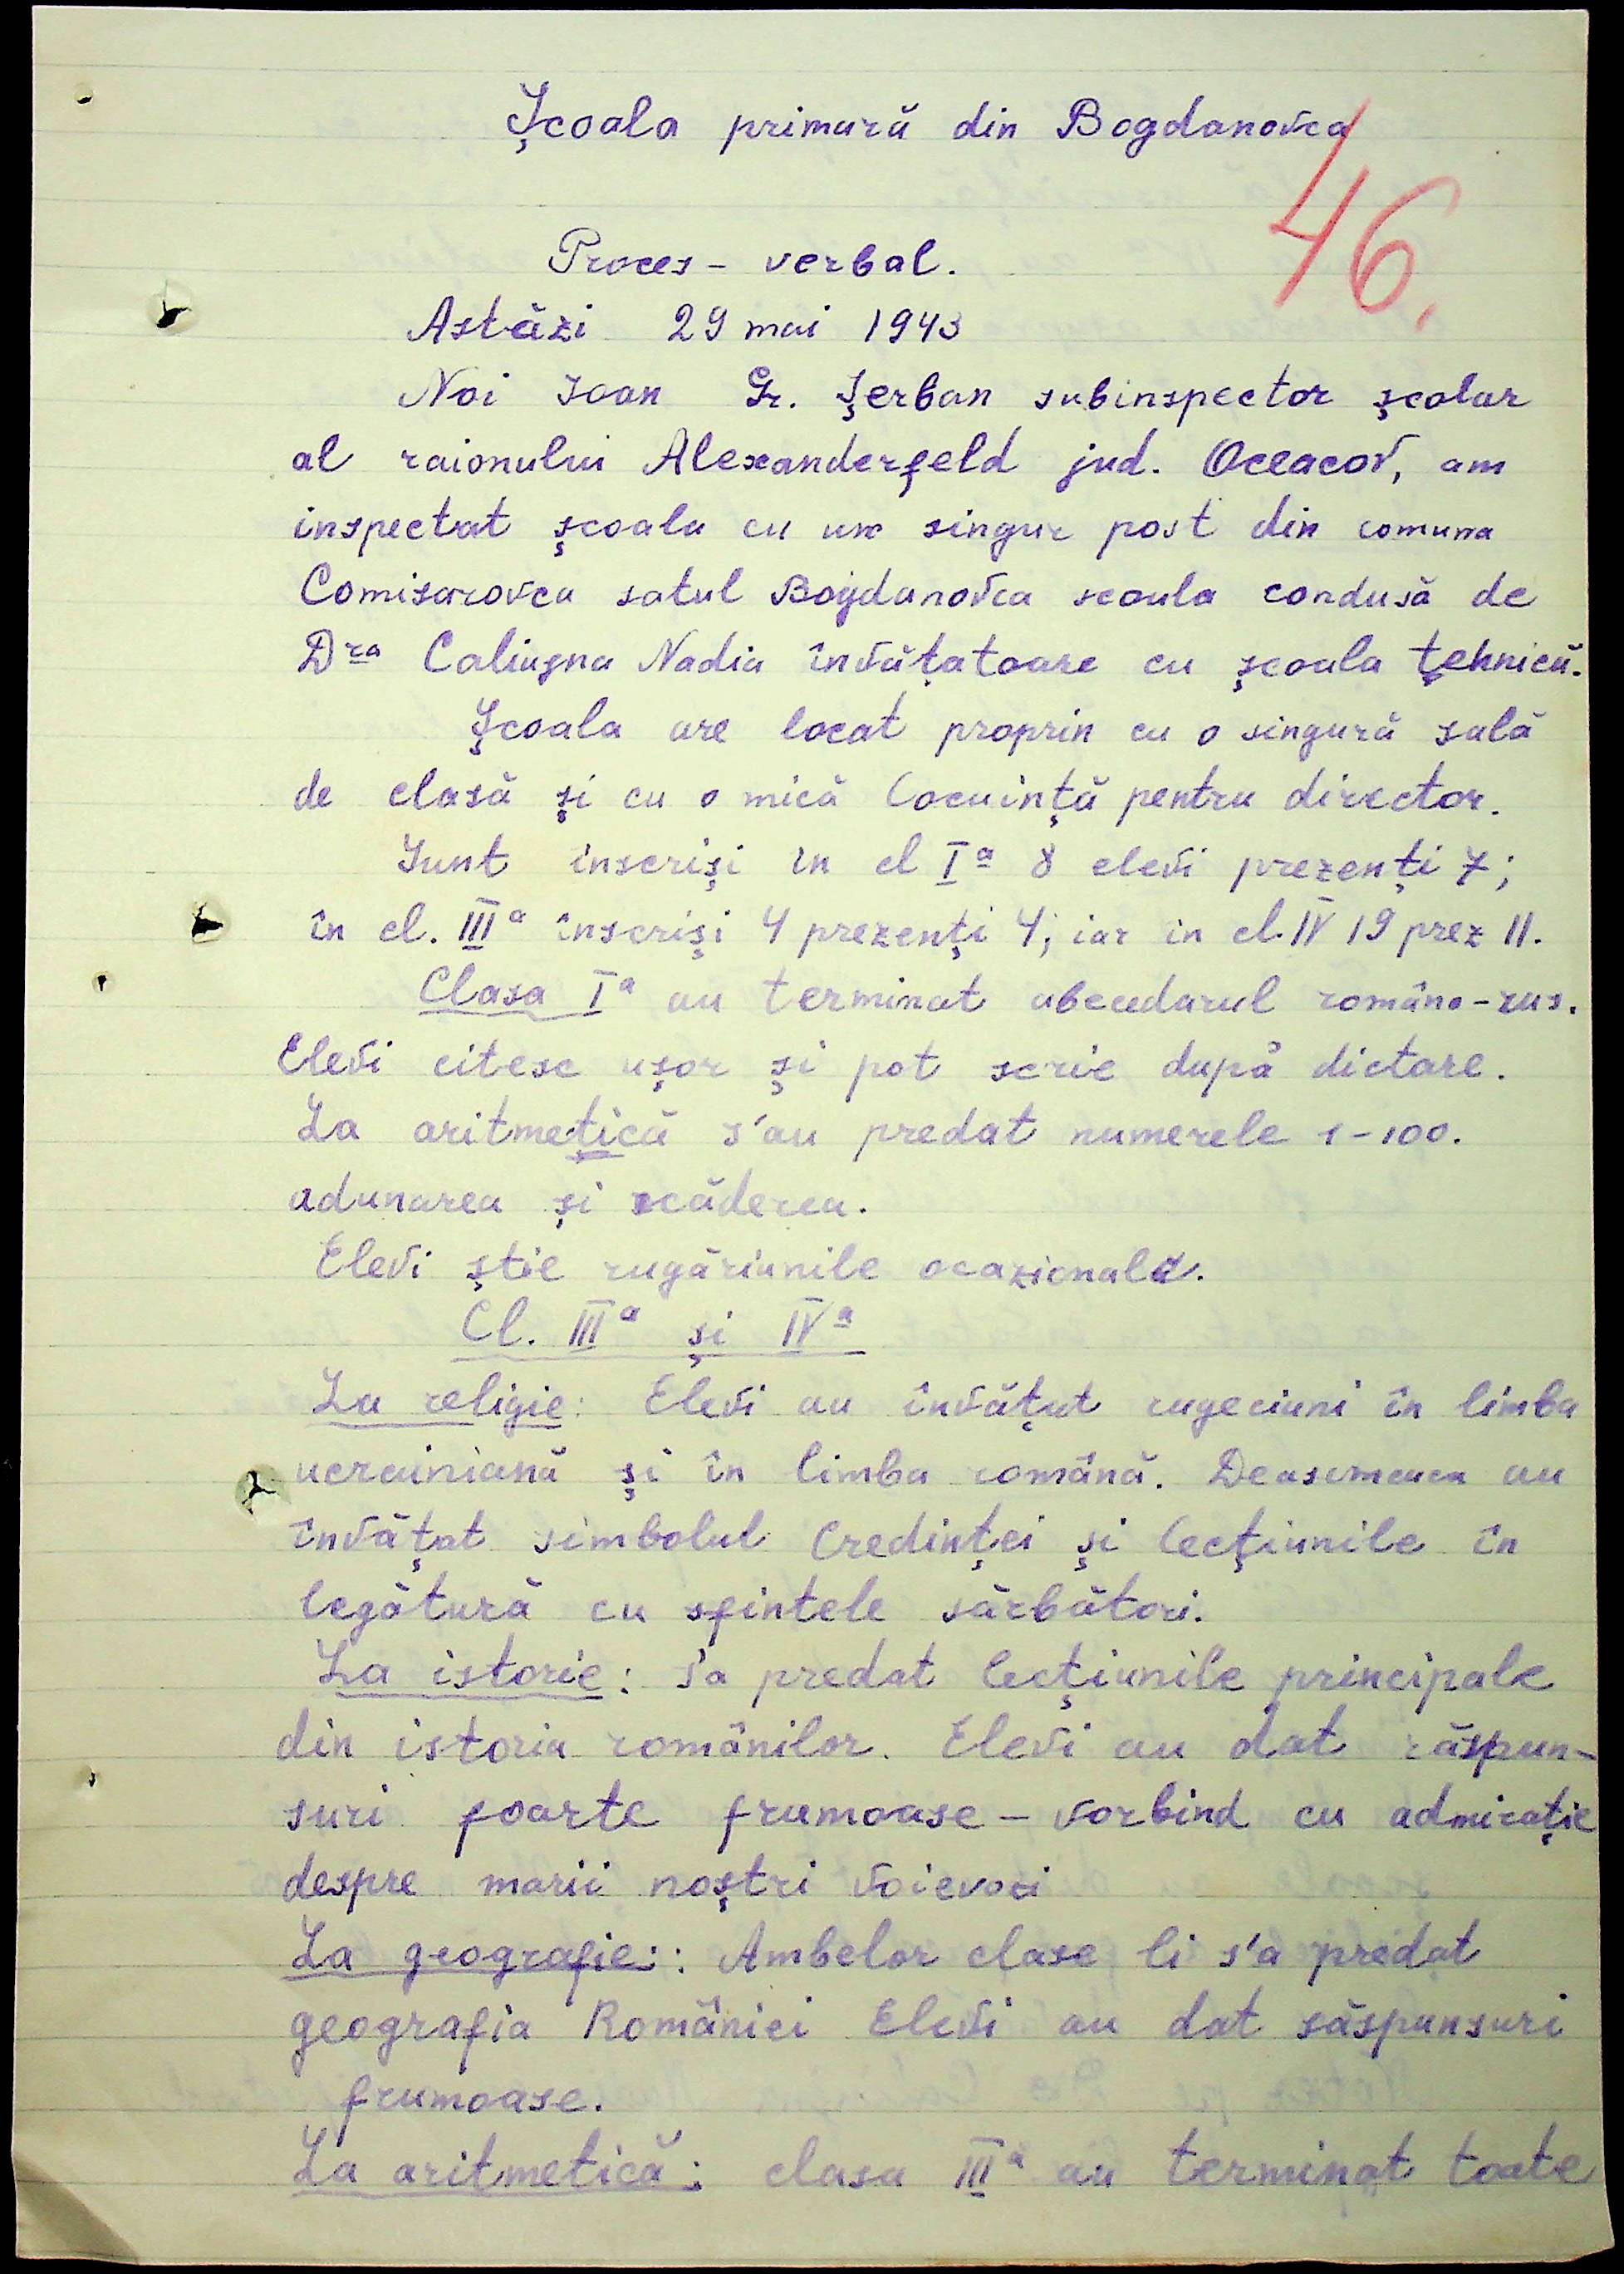 Școala primară din Bogdanovca
46.
Proces - verbal.
Astăzi 29 mai 1943
Noi Ioan Gr. Șerban subinspector școlar
al raionului Alexanderfeld jud. Oceacov, am
inspectat școala cu un singur post din comuna
Comisarovca satul Bogdanovca scoala condusă de
Dra Caliugna Nadia învățatoare cu școala țehnică.
Școala are locat propriu cu o singură sală
de clasă și cu o mică locuință pentru director.
Sunt inscriși in cl Iª 8 elevi prezenți 7;
în cl. IIIª înscriși 4 prezenți 4; iar in cl. IV 19 prez 11.
Clasa Iª au terminat abecedarul româno-rus.
Elevi citesc ușor și pot scrie după dictare.
La aritmetică s'au predat numerele 1-100.
adunarea și scăderea.
Elevi știe rugăriunile ocazionale.
Cl. IIIª și IVª
La religie: Elevi au învățat rugeciuni în limba
ucrainiană și în limba română. Deasemenea au
învățat simbolul Credinței și lecțiunile în
legătură cu sfintele sărbători.
La istorie: s'a predat lecțiunile principale
din istoria românilor. Elevi au dat răspun-
suri foarte frumoase - vorbind cu admirație
despre marii noștri voievozi
La geografie:: Ambelor clase li s'a predat
geografia României Elevi au dat săspunsuri
frumoase.
La aritmetică: clasa IIIª au terminat toate